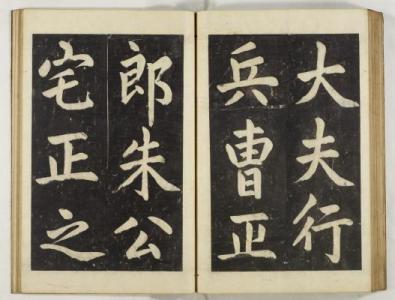 大夫行
兵曹正
郎朱公
宅正之